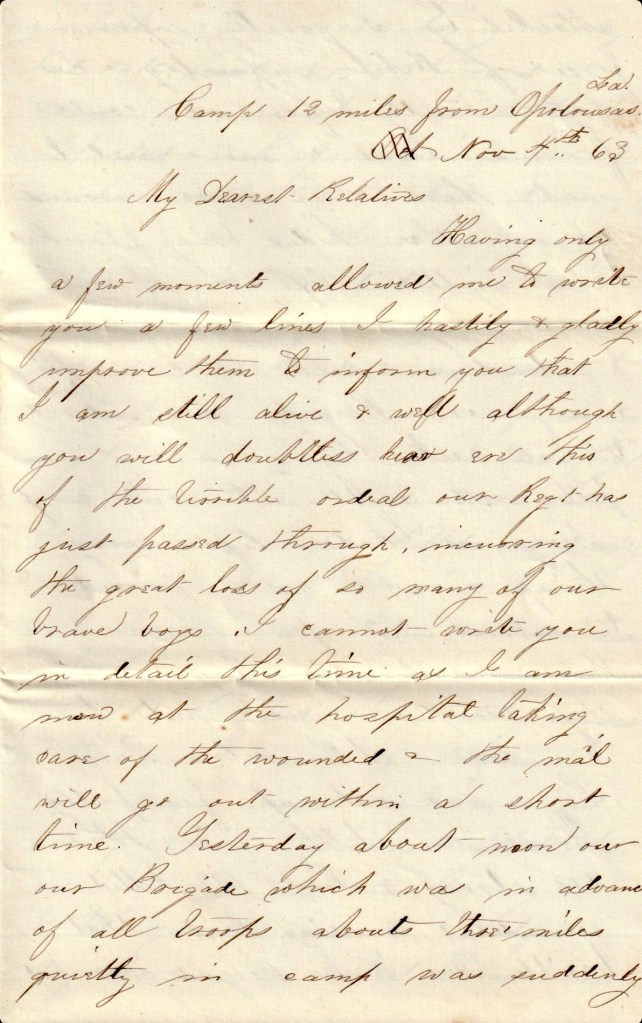 La.
Camp 12 miles from Opolousas.
Oct Nov 4th 63
My Dearest Relatives
Having only
a few moments allowed me to write
you a few lines I hastily & gladly
improve them to inform you that
I am still alive & well although
you will doubtless hear ere this
of the terrible ordeal our Regt has
just passed through, incurring
the great loss of so many of our
brave boys. I cannot write you
in detail this time as I am
now at the hospital taking
care of the wounded & the mail
will go out within a short
time. Yesterday about noon our
our Brigade which was in advance
of all troops abouts three miles
quietly in camp was suddenly